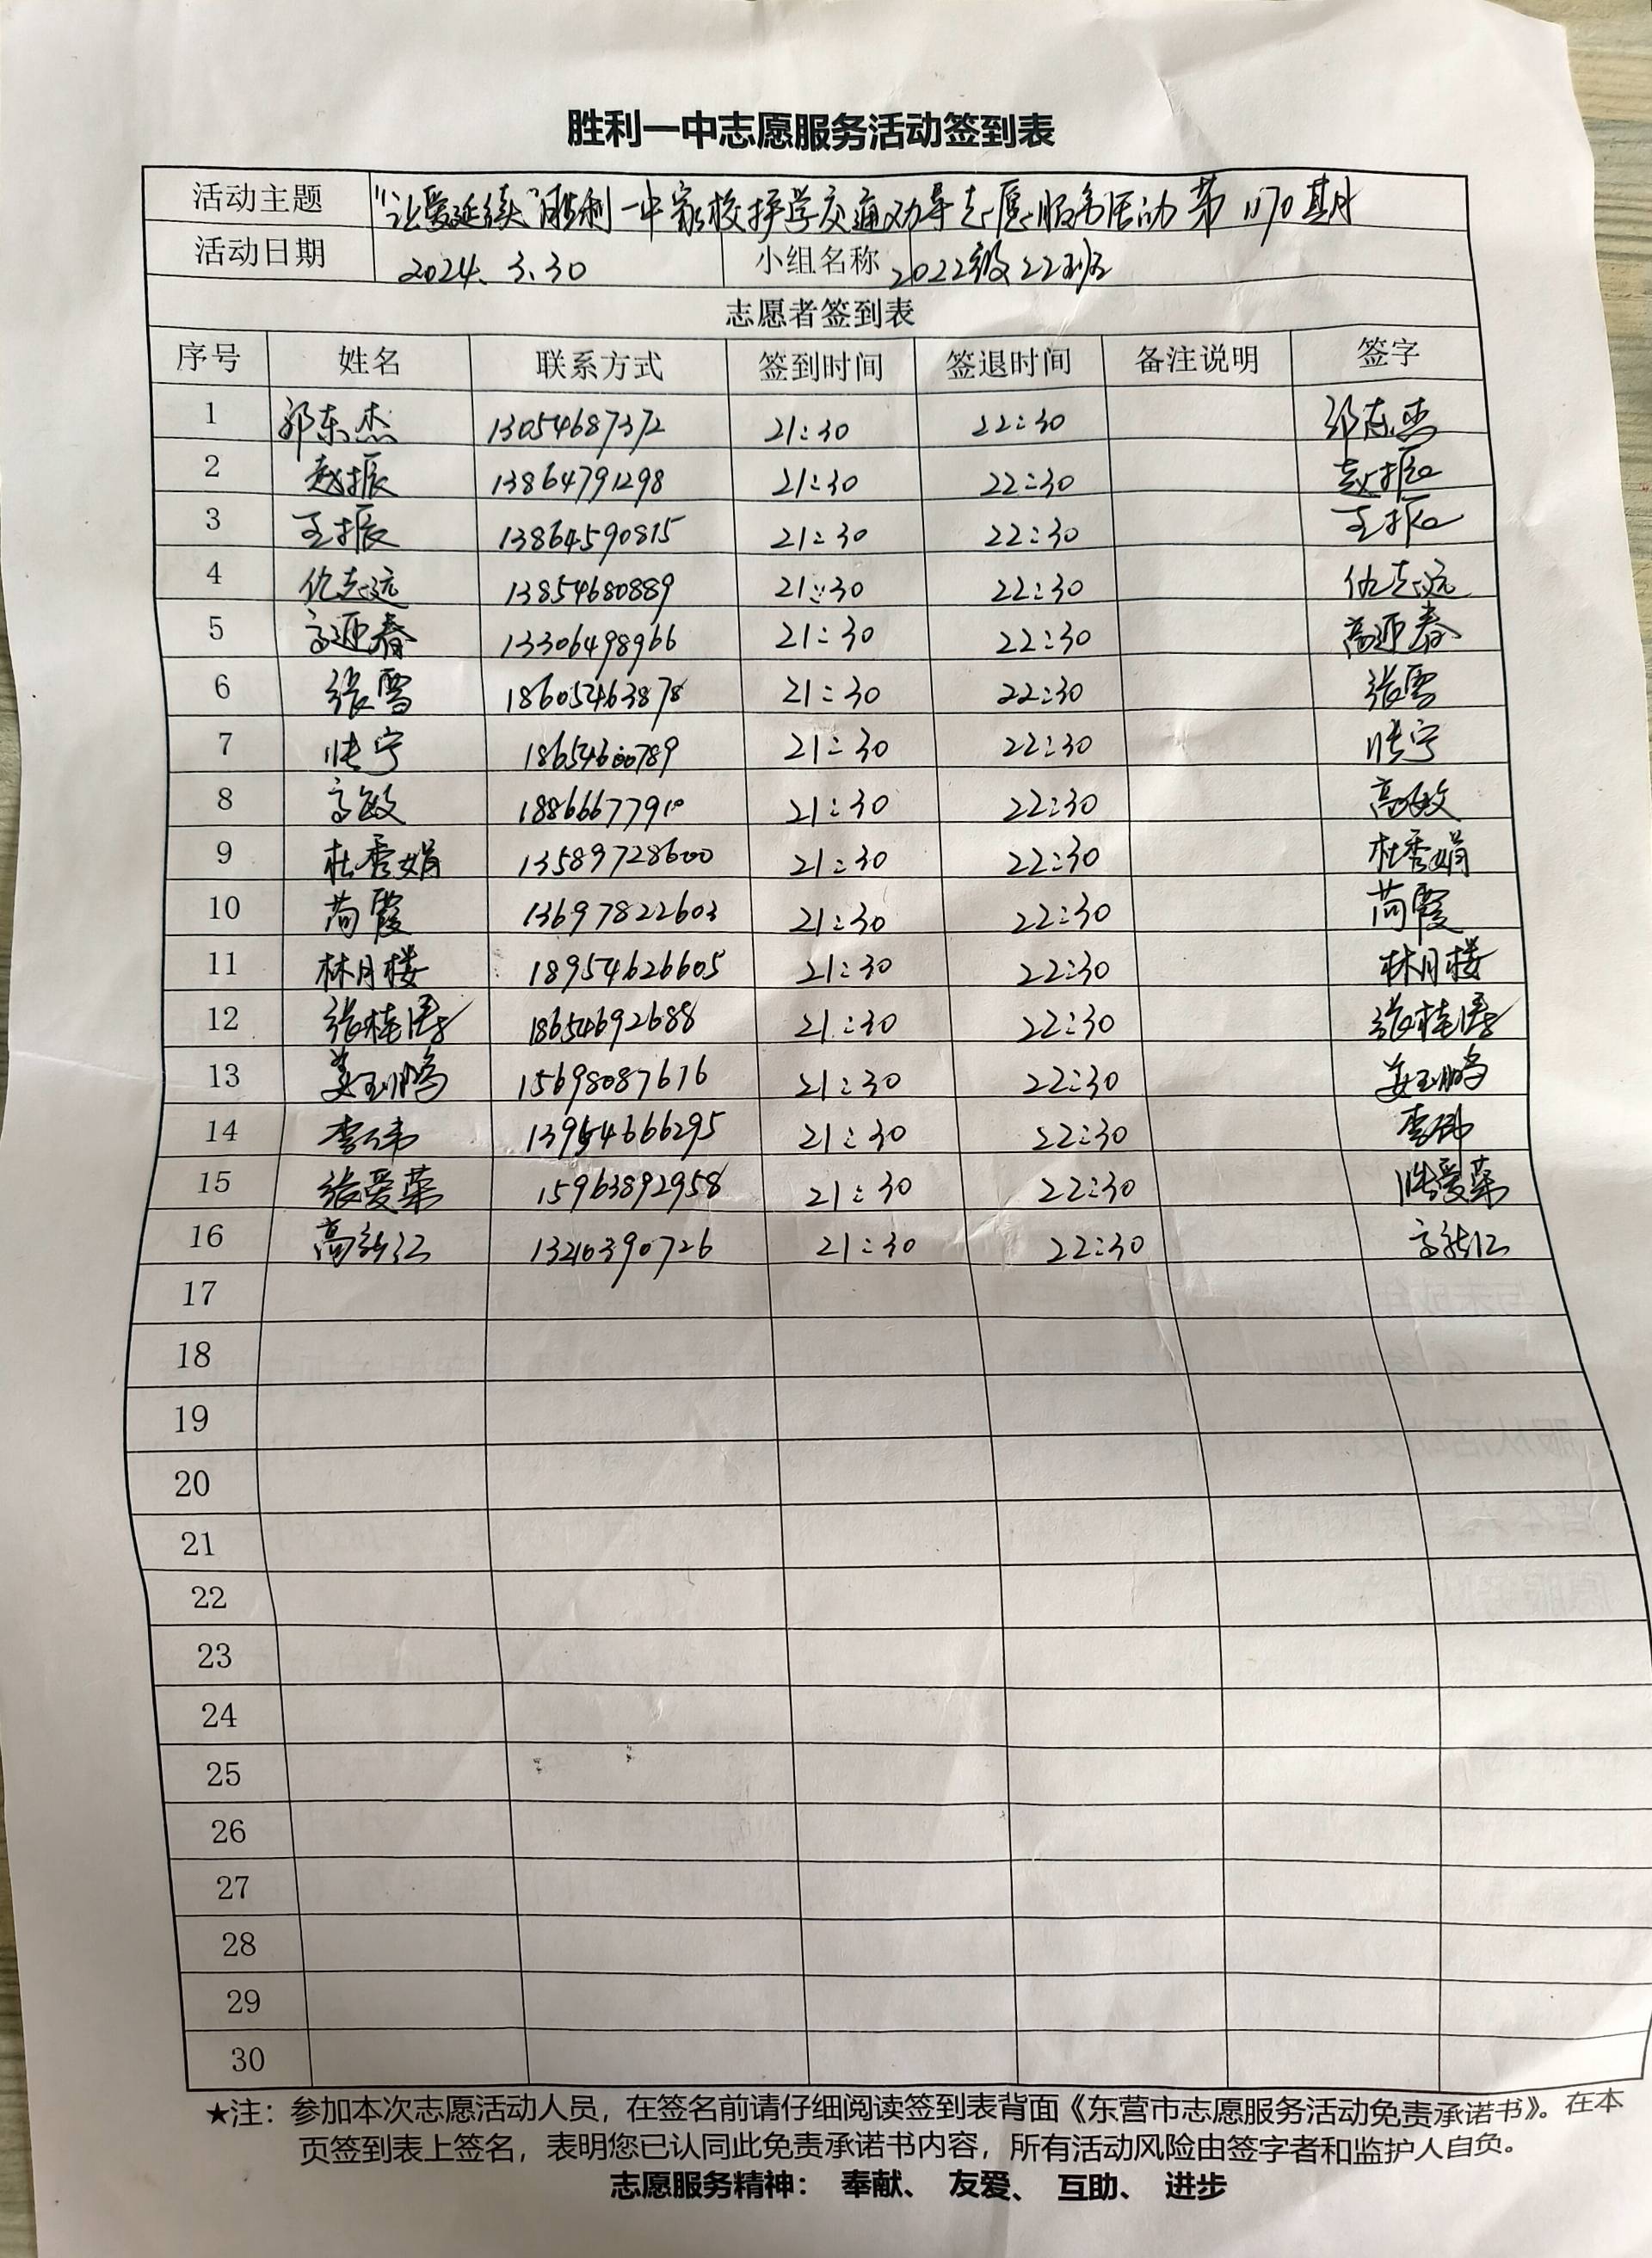 胜利一中志愿服务活动签到表
活动主题 "让爱延续"胜利一中家校护学交通劝导志愿服务活动 第1170期
活动日期 2024.3.30 小组名称 2022级22班
志愿者签到表
序号 姓名 联系方式 签到时间 签退时间 备注说明 签字
1 郭东杰 13054687372 21:30 22:30 郭东杰
2 赵振 13864791298 21:30 22:30 赵振
3 王振 13864590815 21:30 22:30 王振
4 仇志远 13854680889 21:30 22:30 仇志远
5 高迎春 13306498966 21:30 22:30 高迎春
6 张雪 18605463878 21:30 22:30 张雪
7 张宁 18654600789 21:30 22:30 张宁
8 高敏 18866677910 21:30 22:30 高敏
9 杜秀娟 13589728600 21:30 22:30 杜秀娟
10 苘霞 13697822603 21:30 22:30 苘霞
11 林月楼 18954626605 21:30 22:30 林月楼
12 张桂 18654692688 21:30 22:30 张桂
13 姜玉鹏 15698087616 21:30 22:30 姜玉鹏
14 李伟 13954666295 21:30 22:30
15 张爱菊 15963892958 21:30 22:30 张爱菊
16 高新江 13210390726 21:30 22:30 高新江
17
18
19
20
21
22
23
24
25
26
27
28
29
30
★注：参加本次志愿活动人员，在签名前请仔细阅读签到表背面《东营市志愿服务活动免责承诺书》。在本
页签到表上签名，表明您已认同此免责承诺书内容，所有活动风险由签字者和监护人自负。
志愿服务精神： 奉献、 友爱、 互助、 进步